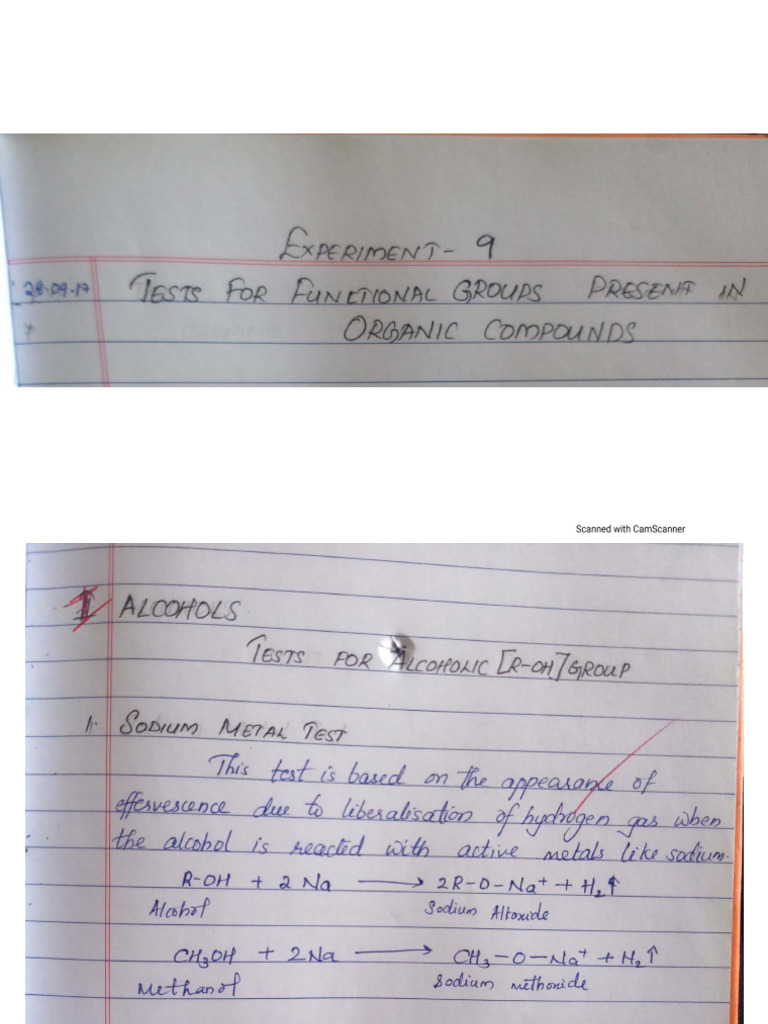 EXPERIMENT- 9
28-09-19
TESTS FOR FUNCTIONAL GROUPS PRESENT IN
ORGANIC COMPOUNDS
Scanned with CamScanner
I ALCOHOLS
TESTS FOR ALCOHOLIC [R-OH] GROUP
1. SODIUM METAL TEST
This test is based on the appearance of
effervescence due to liberalisation of hydrogen gas when
the alcohol is reacted with active metals like sodium.
R-OH + 2 Na ⟶ 2R-O-Na⁺ + H₂↑
Alcohol Sodium Alkoxide
CH₃OH + 2Na ⟶ CH₃-O-Na⁺ + H₂↑
Methanol Sodium methoxide